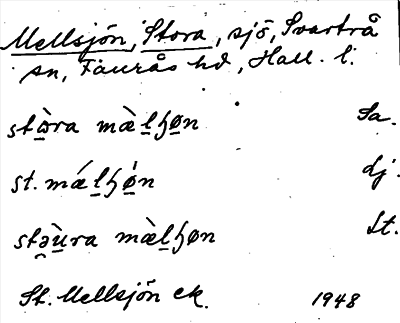 Mellsjön, Stora, sjö, Svartrå
sn, Faurås hd, Hall. l.
stὼra mæ̀lɧøn Sa.
st. mǽlɧǿn dj.
stəù̯ra mæ̀lɧøn Lt.
St. Mellsjön ek. 1948